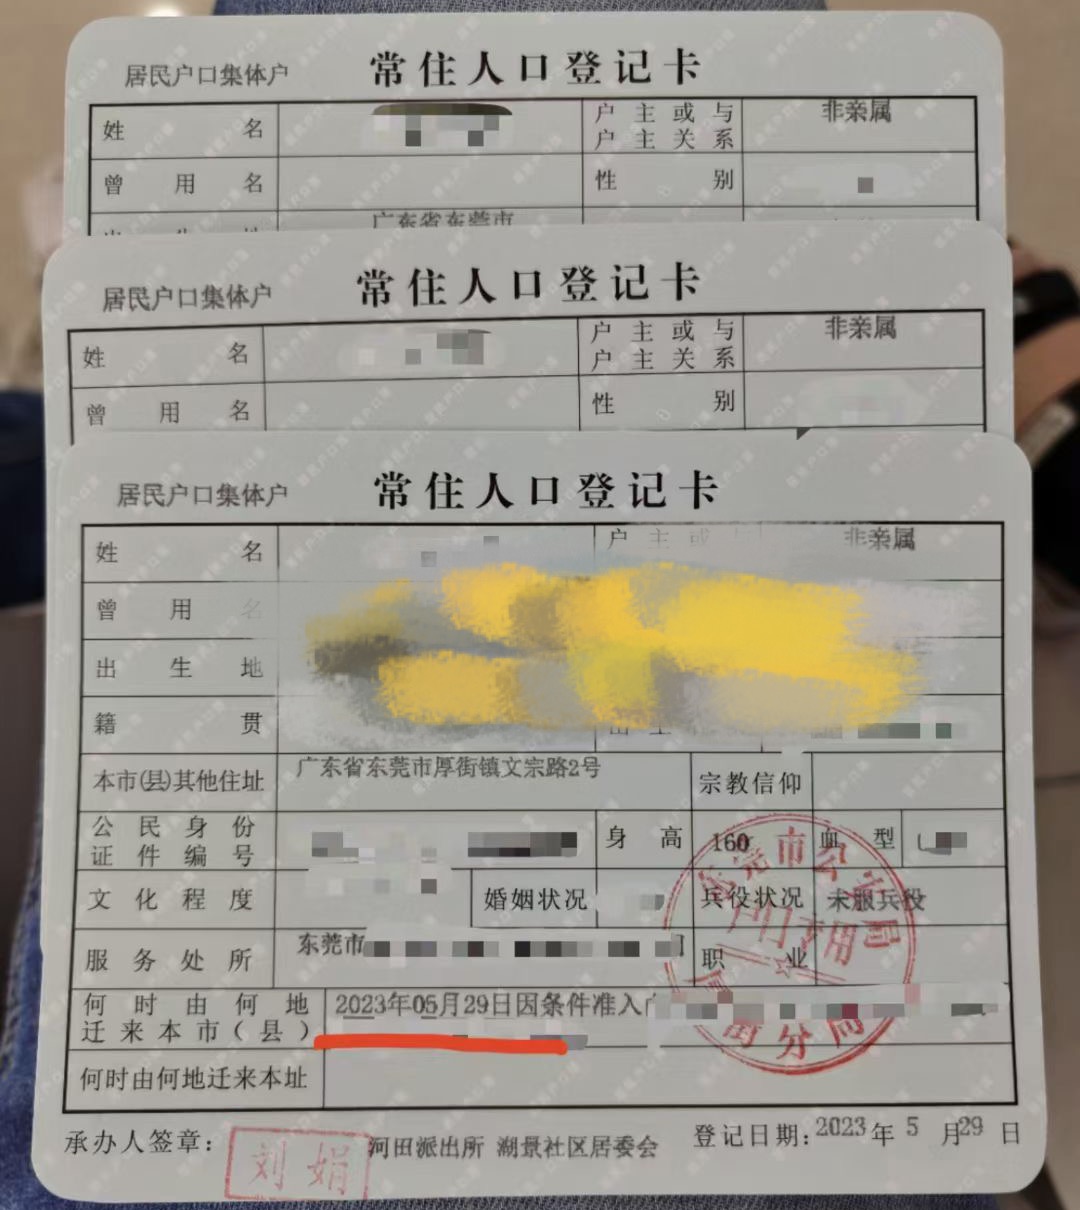 居民户口集体户 常住人口登记卡
姓名 户主或与户主关系 非亲属
曾用名 性别
广东省东莞市
居民户口集体户 常住人口登记卡
姓名 户主或与户主关系 非亲属
曾用名 性别
居民户口集体户 常住人口登记卡
姓名 户主或与 非亲属
曾用名
出生地
籍贯
本市(县)其他住址 广东省东莞市厚街镇文宗路2号 宗教信仰
公民身份证件编号 身高 160 血型
文化程度 婚姻状况 兵役状况 未服兵役
服务处所 东莞市 职业
何时由何地迁来本市(县) 2023年05月29日因条件准入
何时由何地迁来本址
东莞市公安局
户口专用
街分局
承办人签章: 刘娟 河田派出所 湖景社区居委会 登记日期: 2023年5月29日